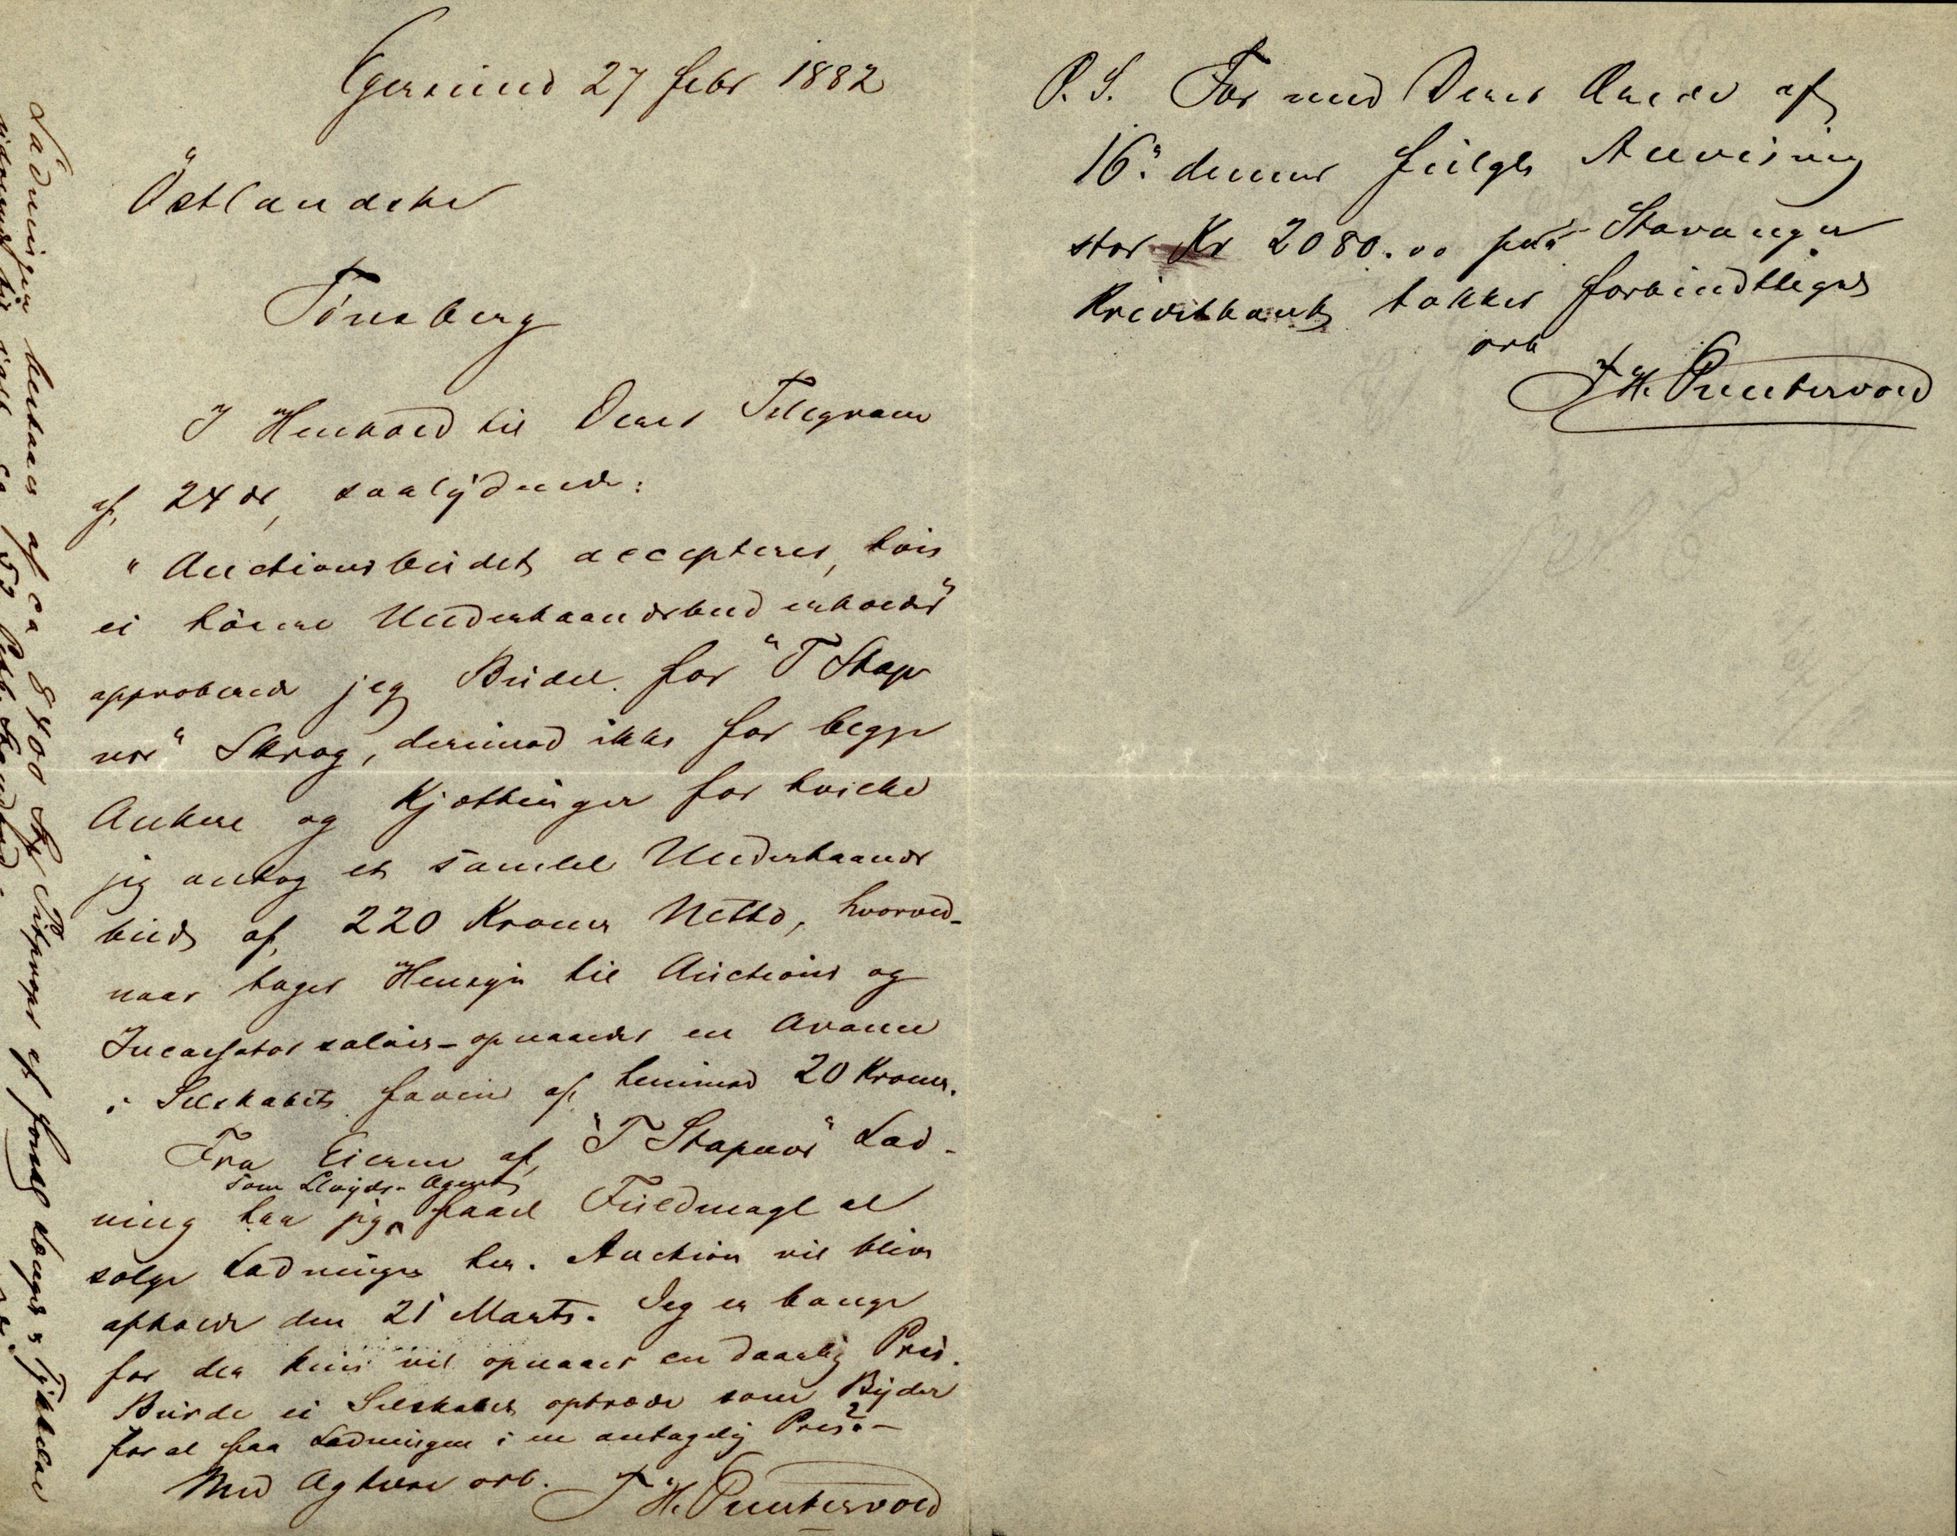 Egersund 27 febr 1882
Östlandske
Tönsberg
I Henhold til Deres Telegram
af 24de, saalydende:
"Auctionsbudet accepteres, hvis
ei höiere Underhaandsbud erholdes"
approberede jeg Budet for "T Stap
nes" Skrog, derimod ikke for begge
Ankere og Kjættinger for hvilke
jeg antog et samlet Underhaands
bud af 220 Kroner Netto, hvorved-
naar tages Hensyn til Auctions og
Incassator salair - opnaaedes en Avance
i Selskabets favör af henimod 20 Kroner.
Fra Eierne af "T Stapnes" Lad-
som Lloyds-Agent
ning har jeg faaet Fuldmagt at
sælge Ladningen her. Auction vil blive
afholdt den 21 Marts. Jeg er bange
for den kun vil opnaaes en daarlig Pris.
Burde ei Selskabet optræde som Byder
for at faa Ladningen i en antagelig Pris? -
Med Agtelse erb.
J H. Puntervold
Ladningen bestaar af ca 8400 Pitprops af forskj Længer & Tykkelser
P.S. For med Deres Ærede af
16de dennes fulgte Anvisning
stor Kr 2080.00 paa Stavanger
Kreditbank takker forbindtligst
erb
J H. Puntervold